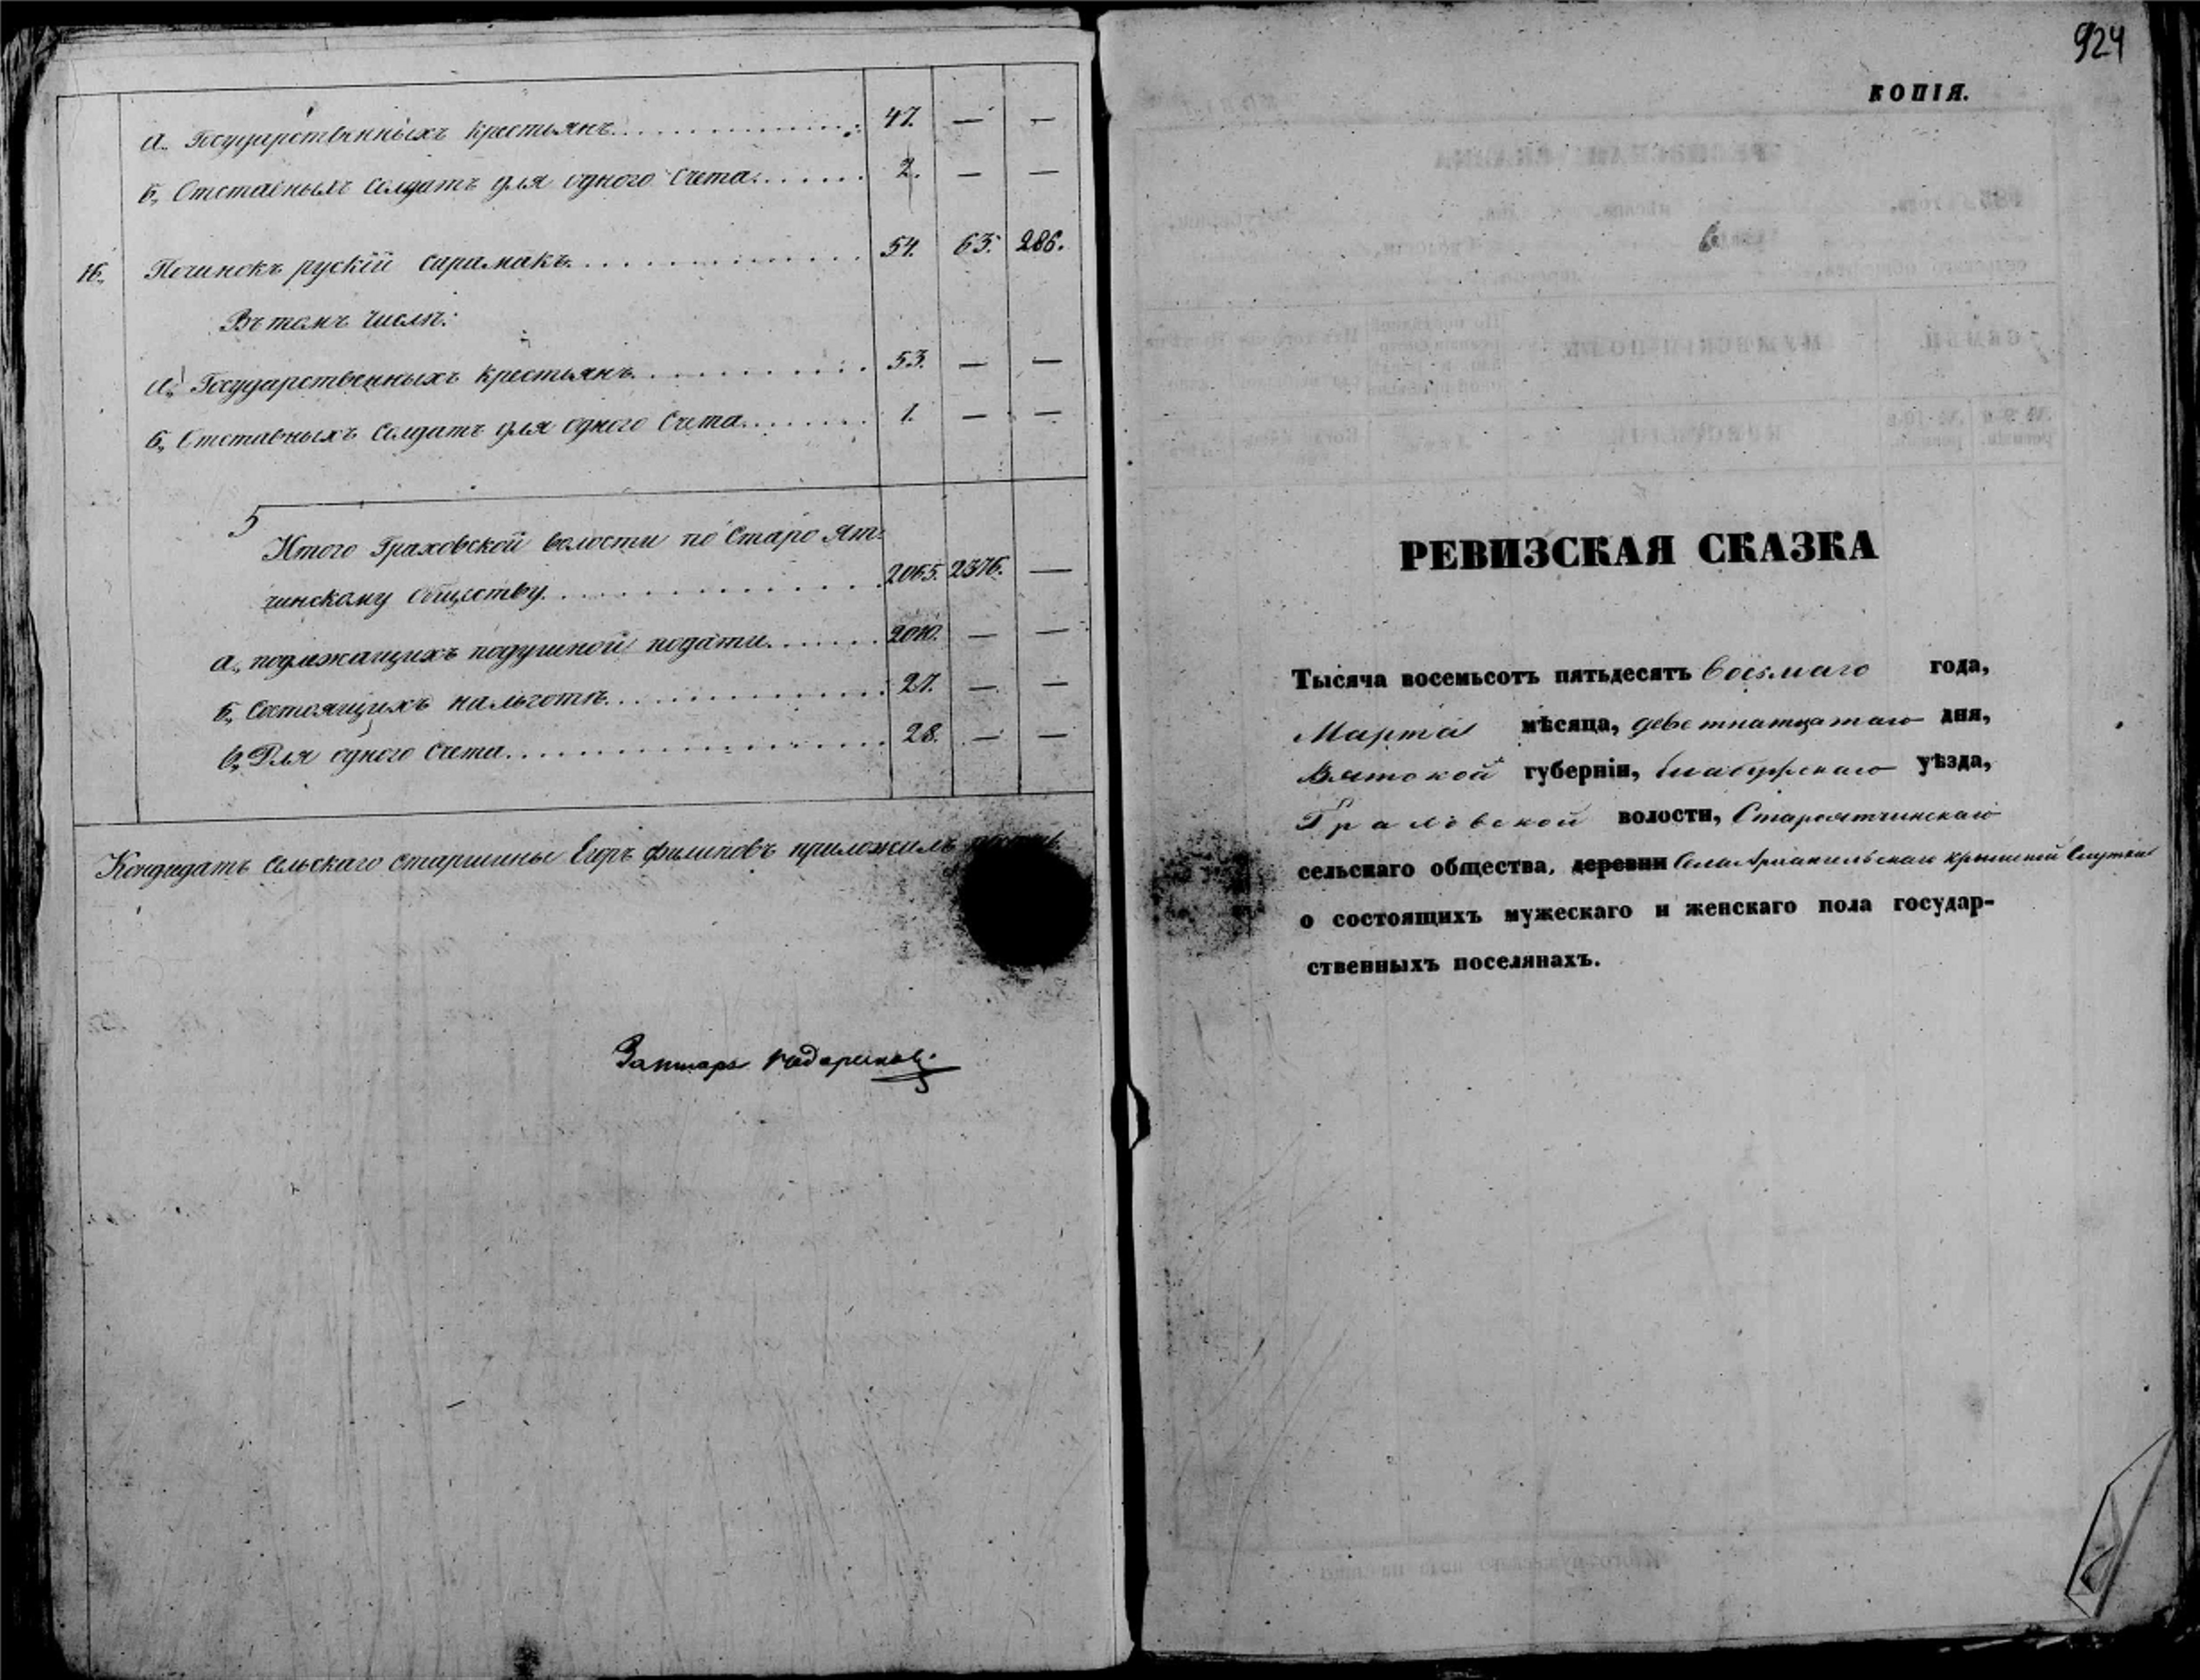 а. Государственныхъ крестьянъ 47. — —
б., Отставныхъ солдатъ для одного счета 2. — —
16., Починокъ рускій сарамакъ 54. 63. 286.
Въ томъ числѣ:
а., Государственныхъ крестьянъ 53. — —
б., Отставныхъ солдатъ для одного счета 1. — —
5
Итого Граховской волости по Старо Ят-
чинскому обществу 2065. 2376. —
а., подлежащихъ подушной подати 2010. — —
б., состоящихъ на льготѣ 27. — —
в., Для одного счета 28. — —
Кондидатъ сельскаго старшины Егоръ Филиповъ приложилъ
924
КОПІЯ.
РЕВИЗСКАЯ СКАЗКА
Тысяча восемьсотъ пятьдесятъ восьмаго года,
Марта мѣсяца, деветнатцатаго дня,
Вятской губерніи, Елабужскаго уѣзда,
Граховской волости, Староятчинскаго
сельскаго общества, деревни Села Архангельскаго
о состоящихъ мужескаго и женскаго пола государ-
ственныхъ поселянахъ.